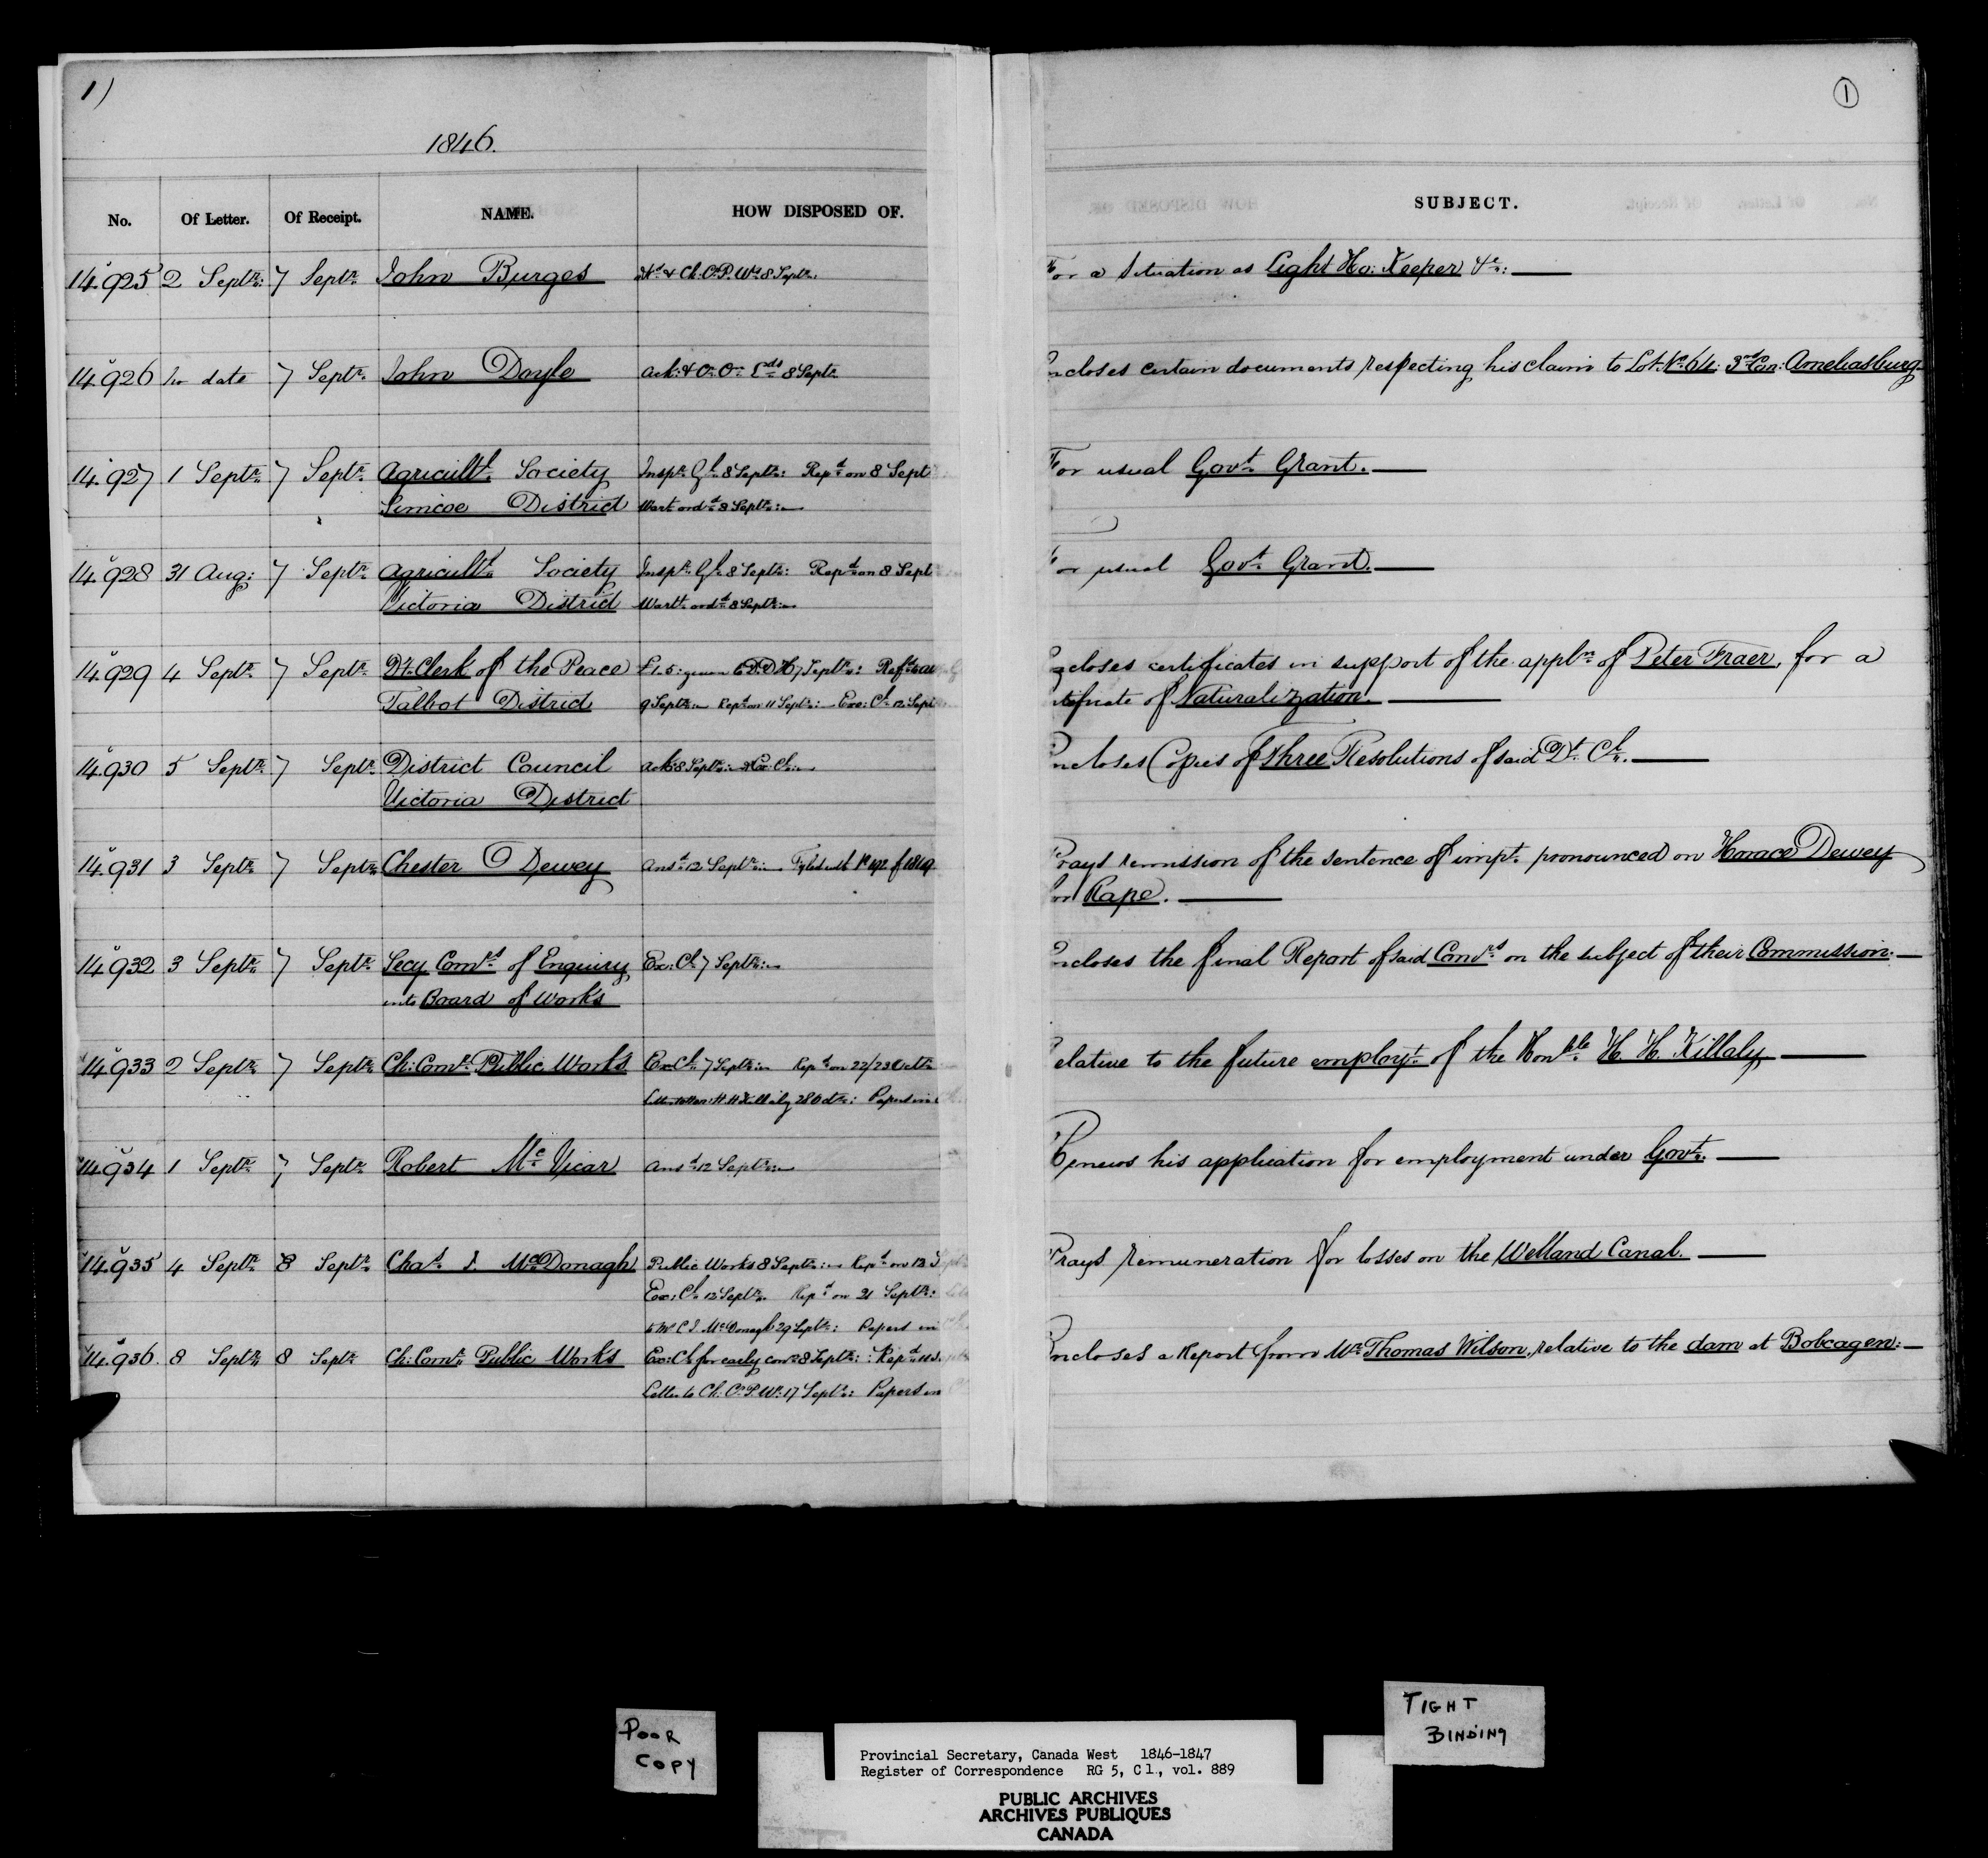 1)
1
1846.
No. Of Letter. Of Receipt. NAME. HOW DISPOSED OF. SUBJECT.
14.925 2 Septr: 7 Septr John Burges & Ch: Cr P. Ws 8 Septr: For a Situation as Light Ho: Keeper &c:
14.926 no date 7 Septr. John Doyle Ack: & 8 Septr Encloses certain documents respecting his claim to Lot. No. 64. 3rd Con: Ameliasburg
14.927 1 Septr 7 Septr Agricultl. Society Inspr Gl. 8 Septr: Repd on 8 Sept For usual Govt. Grant.
Simcoe District Wart ordd 8 Septr:
14.928 31 Aug: 7 Septr Agricultl. Society Inspr Gl. 8 Septr: Repd on 8 Sept For usual Govt Grant.
Victoria District Wartt ordd 8 Septr:
14.929 4 Septr 7 Septr Dt. Clerk of the Peace £1.5: given 7 Septr: Encloses certificates in support of the applon of Peter Fraer, for a
Talbot District 9 Septr: Repd on 11 Septr: Exe: Cl 12 Sept tificate of Naturalization.
14.930 5 Septr 7 Septr District Council Ack: 8 Septr: Encloses Copies of Three Resolutions of said Dt. Cl.
Victoria District
14.931 3 Septr 7 Septr Chester Dewey Ansd 12 Septr: Prays remission of the sentence of impt. pronounced on Horace Dewey
for Rape.
14.932 3 Septr 7 Septr Secy Comrs of Enquiry Ex: Cl 7 Septr: Encloses the final Report of said Comrs on the subject of their Commission.
into Board of Works
14.933 2 Septr 7 Septr Ch: Comr. Public Works Ex Cl 7 Septr: Repd on 22/23 Octr Relative to the future employt. of the Honble. H. H. Killaly
H H Killaly 28 Octr: Papers in
14.934 1 Septr 7 Septr Robert Mc Vicar Ansd 12 Septr: Renews his application for employment under Govt.
14.935 4 Septr 8 Septr Chas J. McDonagh Public Works 8 Septr: Repd on 12 S Prays remuneration for losses on the Welland Canal.
Exe: Cl 12 Septr. Repd on 21 Septr:
to Mr C J. McDonagh 29 Septr: Papers in
14.936. 8 Septr 8 Septr Ch: Comr Public Works Ex: Cl for early conn 8 Septr: Repd 11 S. Encloses a Report from Mr. Thomas Wilson, relative to the dam at Bobcagen:
Letter to Ch. Cr P. Ws: 17 Septr: Papers in
POOR
COPY
TIGHT
BINDING
Provincial Secretary, Canada West 1846-1847
Register of Correspondence RG 5, C l., vol. 889
PUBLIC ARCHIVES
ARCHIVES PUBLIQUES
CANADA